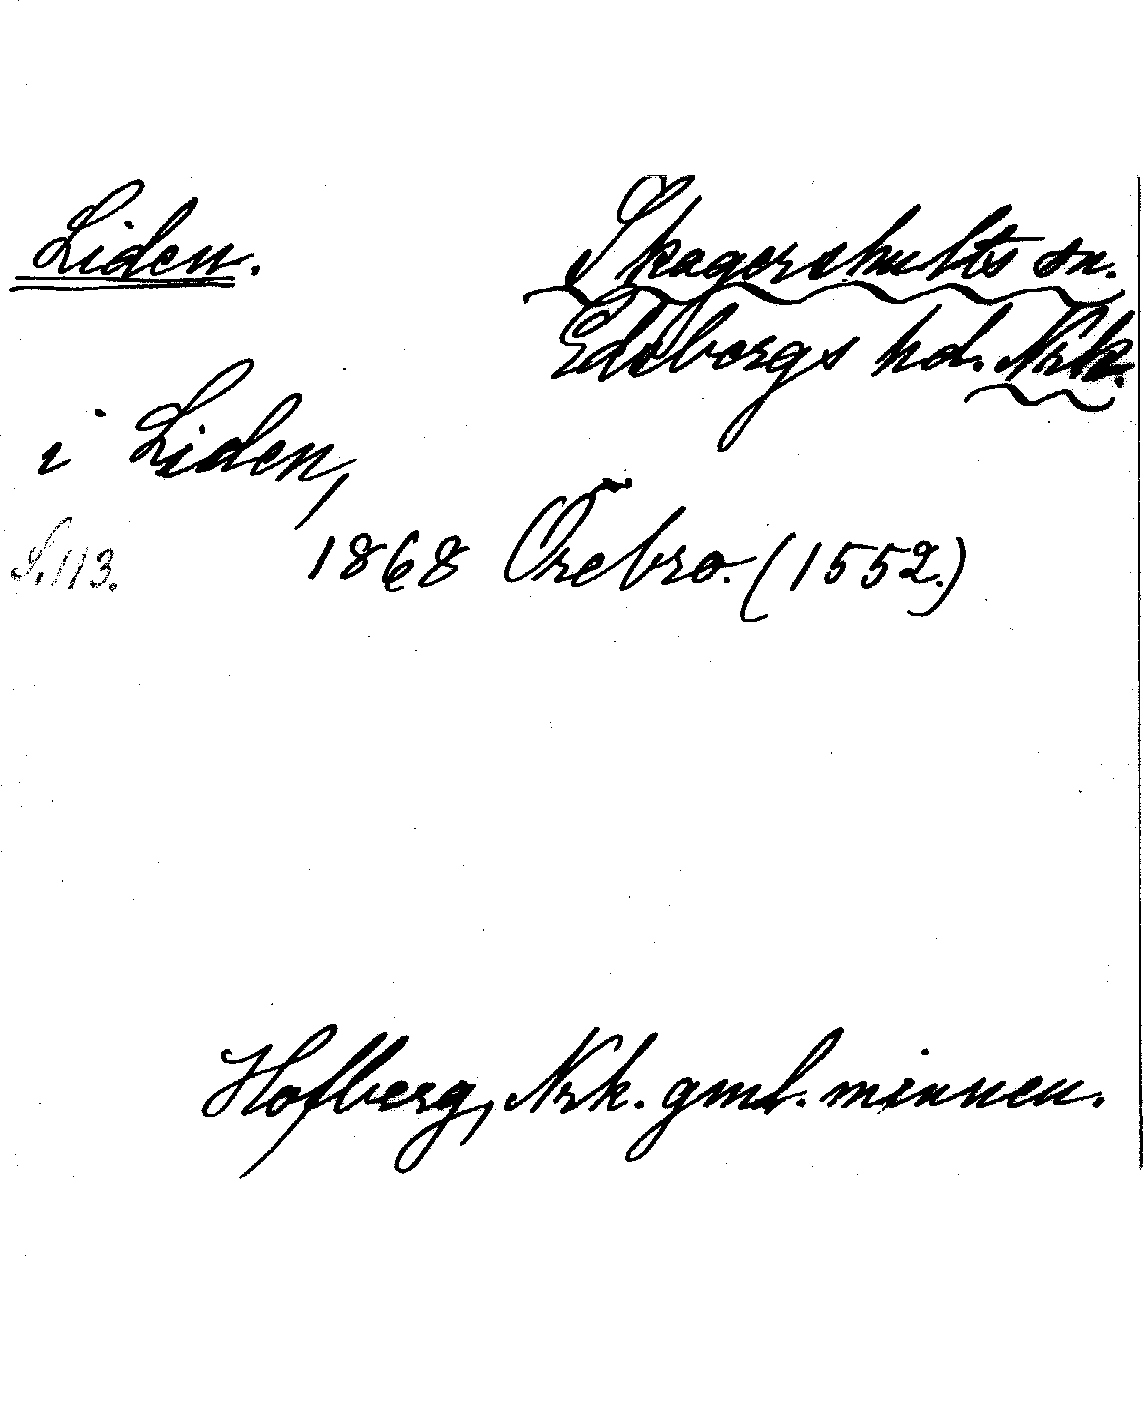 Liden.
Skagershults sn.
Edsbergs hd. Nrk.
i Liden,
S. 113.
1868 Örebro. (1552.)
Hofberg, Nrk. gml. minnen.